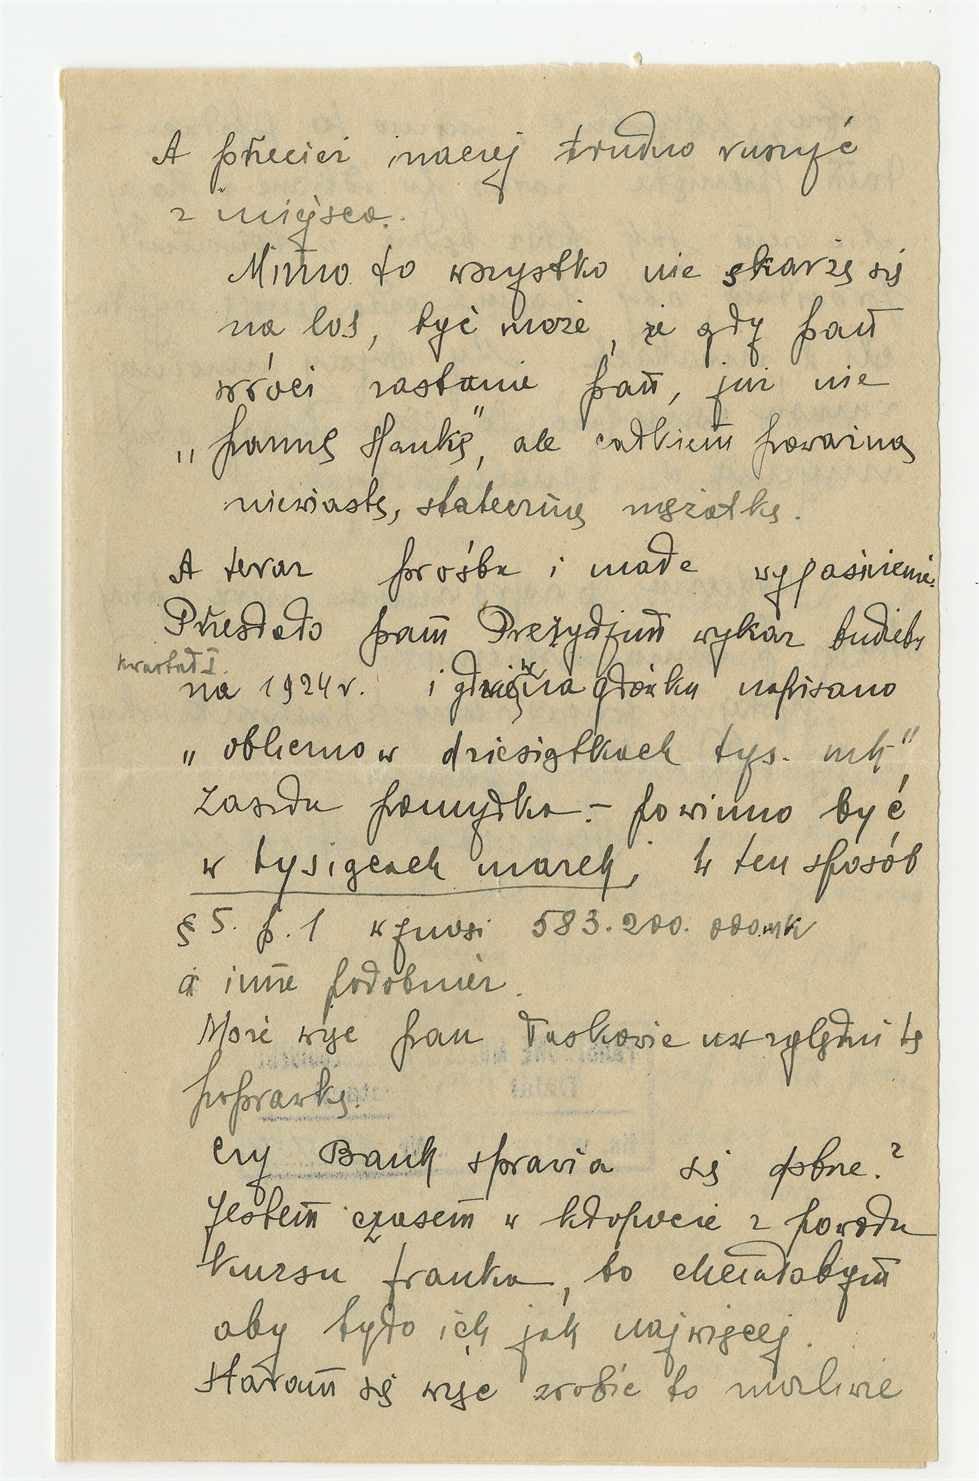 A przecież inaczej trudno ruszyć
z miejsca.
Mimo to wszystko nie skarżę się
na los, być może, że gdy pan
wróci zastanie pan, już nie
„pannę Hankę", ale całkiem poważną
niewiastę, stateczną mężatkę.
A teraz prośba i małe wyjaśnienie.
Przesłało pam Prezydjum wykaz budżetu
kwartał I.
na 1924 r. i na gdańsku napisano
„obliczono w dziesiątkach tys. mk"
Zaszła pomyłka – powinno być
w tysiącach marek, w ten sposób
§ 5. p. 1 wynosi 583.200.000 mk
a inne podobnież.
Może więc pan łaskawie uwzględni tę
poprawkę.
Czy Bank sprawia się dobrze?
Jestem czasem w kłopocie z powodu
kursu franka, bo chciałabym
aby było ich jak najwięcej.
Staram się więc zrobić to możliwie